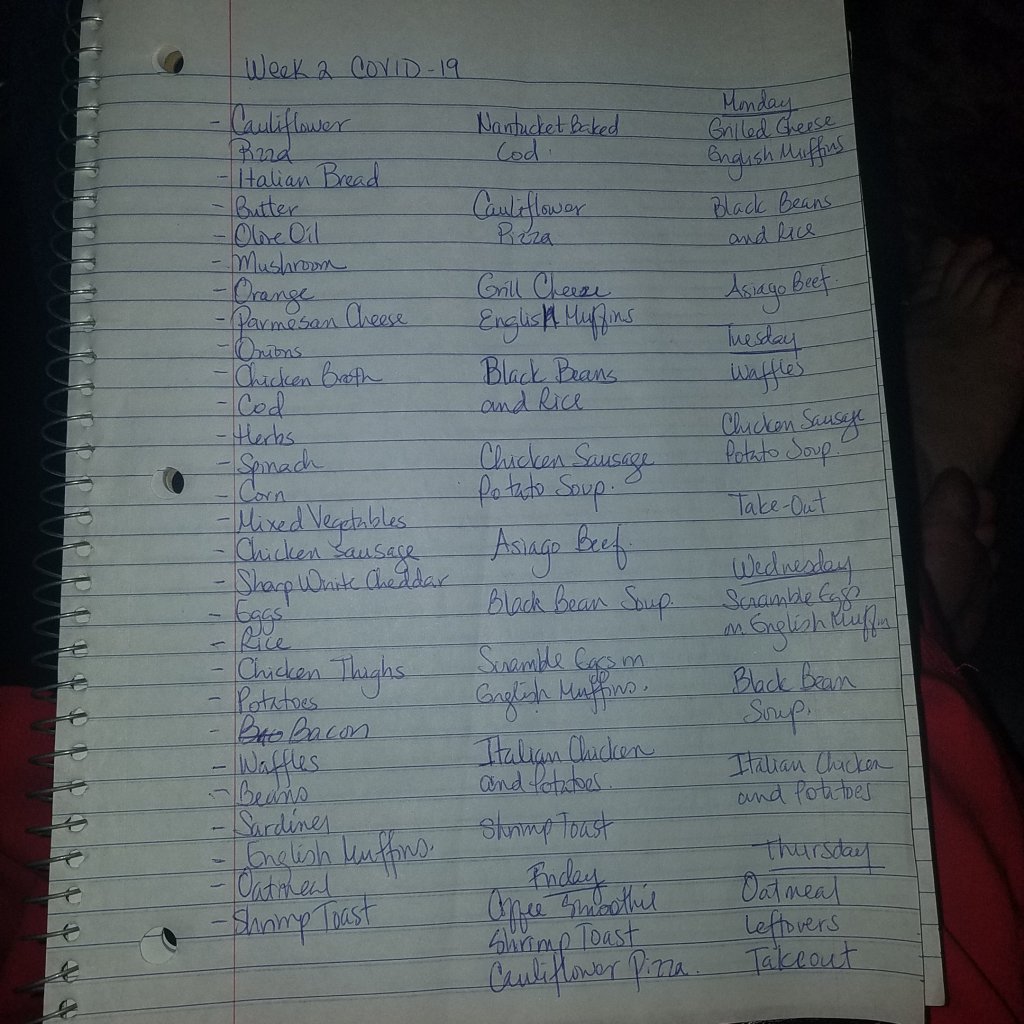 Week 2 COVID-19
- Cauliflower
Pizza
- Italian Bread
- Butter
- Olive Oil
- Mushroom
- Orange
- Parmesan Cheese
- Onions
- Chicken Broth
- Cod
- Herbs
- Spinach
- Corn
- Mixed Vegetables
- Chicken Sausage
- Sharp White Cheddar
- Eggs
- Rice
- Chicken Thighs
- Potatoes
- Bacon
- Waffles
- Beans
- Sardines
- English Muffins.
- Oatmeal
- Shrimp Toast
Nantucket Baked
Cod.
Cauliflower
Pizza
Grill Cheese
English Muffins
Black Beans
and Rice
Chicken Sausage
Potato Soup.
Asiago Beef.
Black Bean Soup.
Scramble Eggs in
English Muffins.
Italian Chicken
and Potatoes.
Shrimp Toast
Friday
Coffee Smoothie
Shrimp Toast
Cauliflower Pizza.
Monday
Grilled Cheese
English Muffins
Black Beans
and Rice
Asiago Beef.
Tuesday
Waffles
Chicken Sausage
Potato Soup.
Take-Out
Wednesday
Scramble Eggs
in English Muffin
Black Bean
Soup.
Italian Chicken
and Potatoes
Thursday
Oatmeal
Leftovers
Takeout